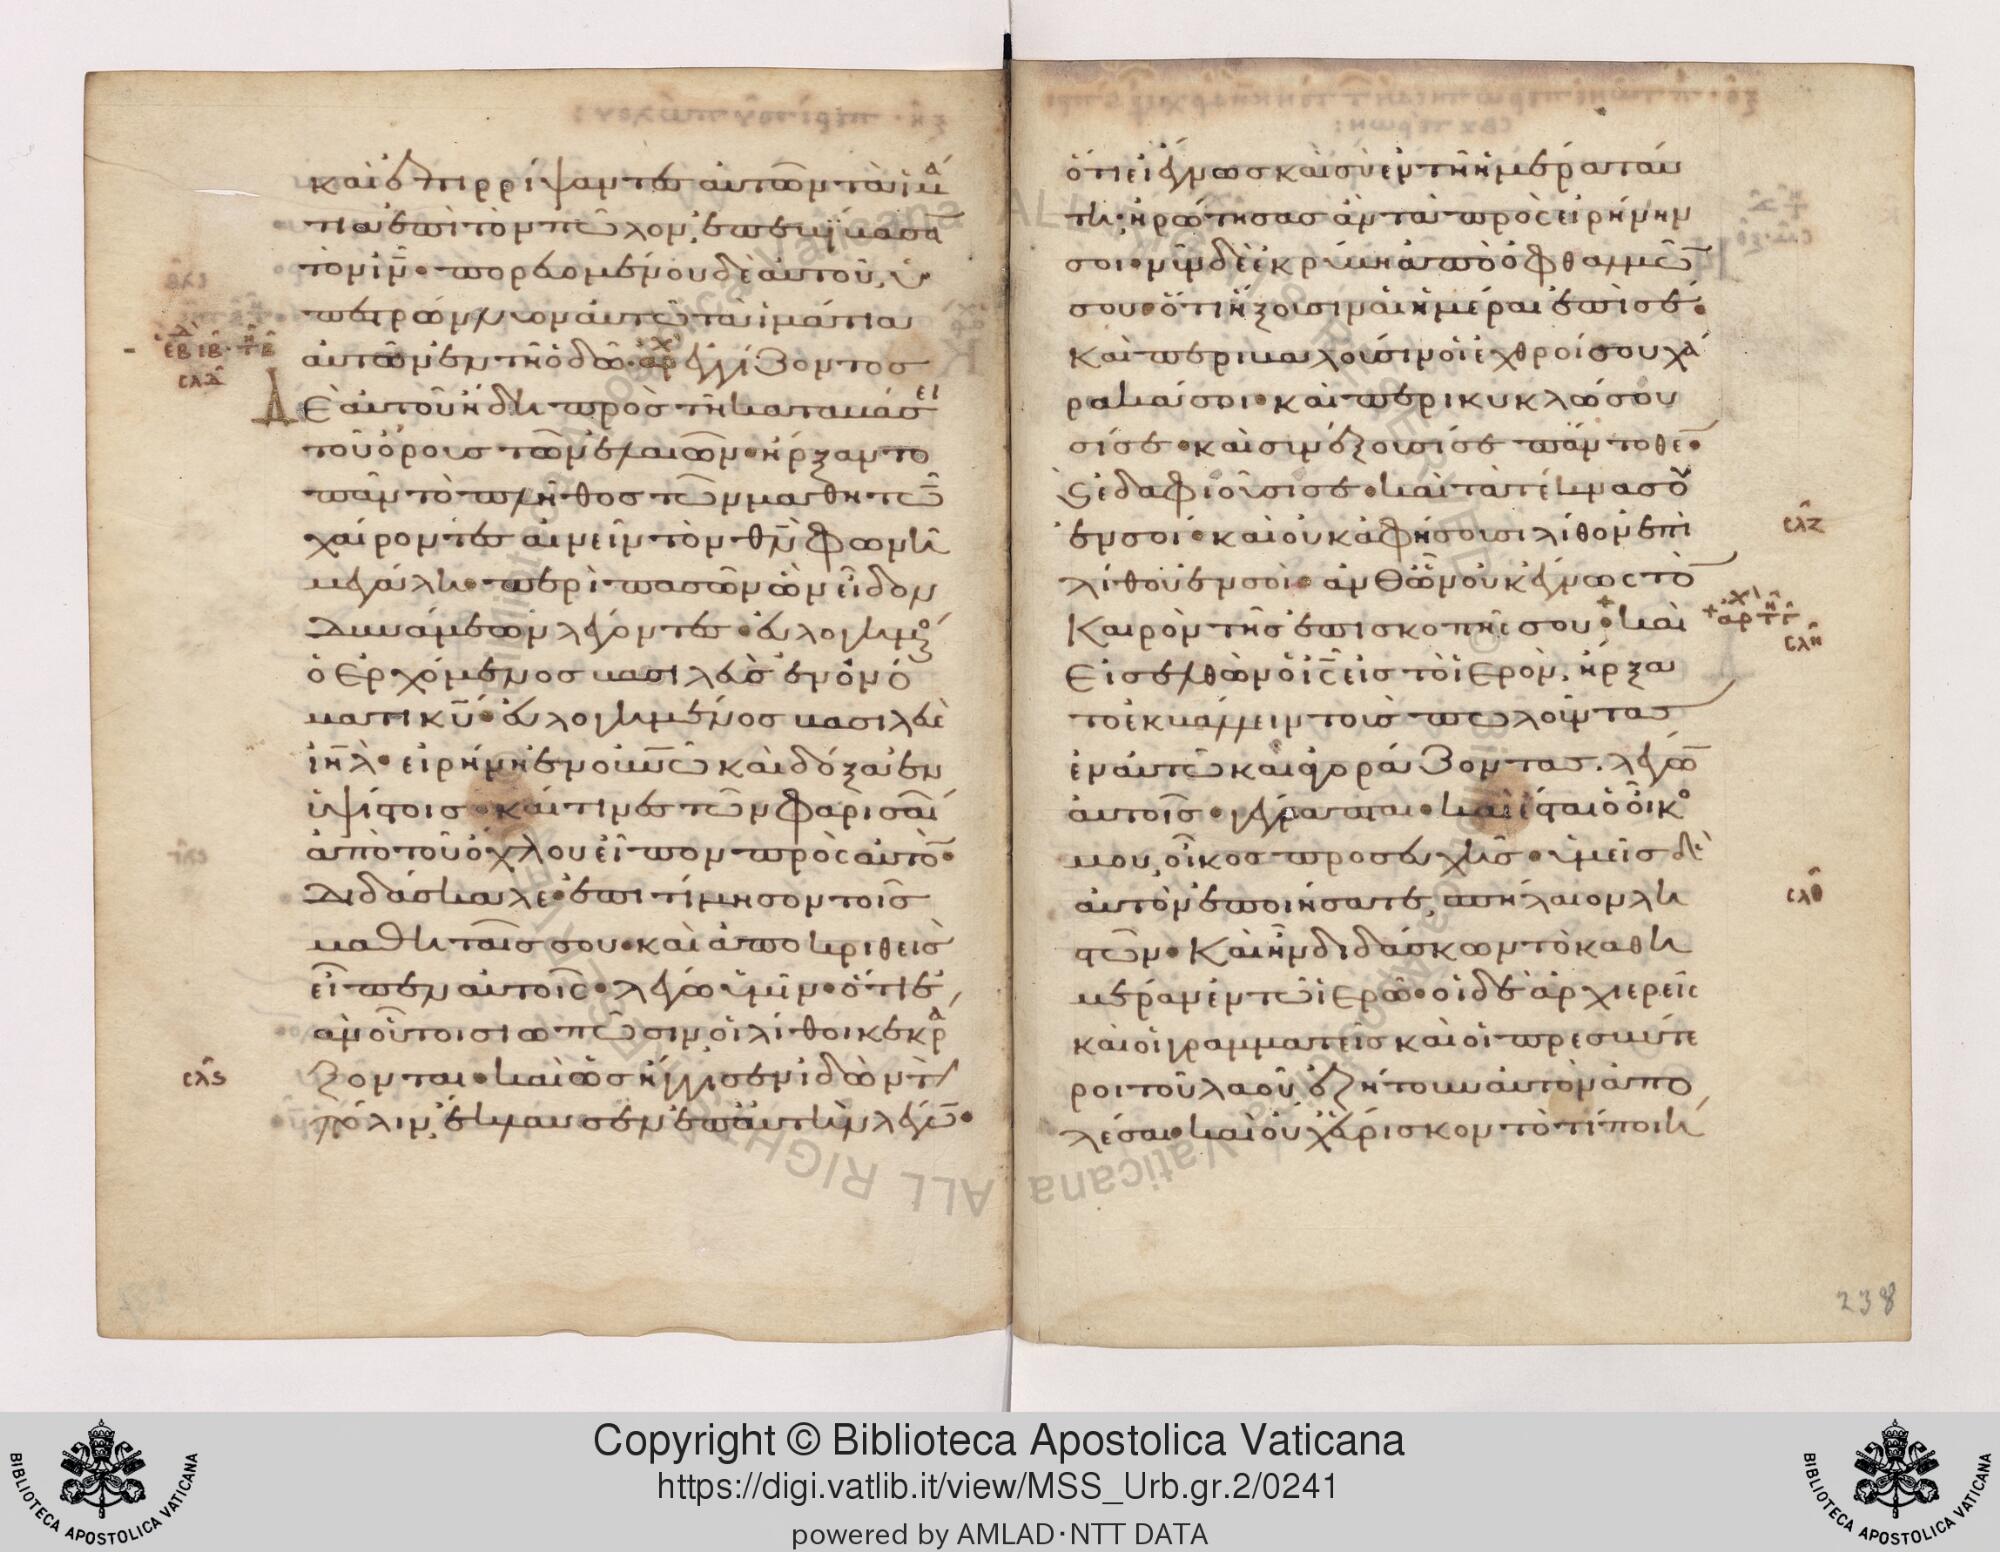 καὶ ἐπιρρίψαντες αὐτῶν τὰ ἱμά
τια ἐπὶ τὸν πῶλον, ἐπεβίβασα
τὸν ἰν̄· πορευομένου δὲ αὐτοῦ, ὑ
πεστρώννυον αὐτῶ τὰ ἱμάτια
αὐτῶν ἐν τῆ ὁδῶ· αρχ ἐγγίζοντος
Δὲ αὐτοῦ ἤδη πρὸς τῆ καταβάσει
τοῦ ὄρους τῶν ἐλαιῶν· ἤρξαντο
πᾶν τὸ πλῆθος τῶν μαθητῶ̄
χαίροντες αἰνεῖν τὸν θν̄ φωνῆ
μεγάλη· περὶ πασῶν ὧν εἶδον
δυνάμεων λέγοντες· εὐλογημένος
ὁ ἐρχόμενος βασιλεὺς ἐν ὀνό
ματι κῡ· εὐλογημένος βασιλεὺ
ιη̄λ· εἰρήνη ἐν οὐνῶ καὶ δόξα ἐν
ὑψίστοις· καί τινες τῶν φαρισαί
ἀπὸ τοῦ ὄχλου εἶπον πρὸς αὐτό̄·
Διδάσκαλε· ἐπιτίμησον τοῖς
μαθηταῖς σου· καὶ ἀποκριθεὶς
εἶπεν αὐτοῖς· λέγω ὑμῖν· ὅτι ἐ
ὰν οὗτοι σιωπῶσιν, οἱ λίθοι κεκρά
ξονται· καὶ ὡς ἤγγισεν ἰδὼν τὴν
πόλιν, ἔκλαυσεν ἐπ' αὐτὴν λέγω̄·
σλς
σλδ
ὅτι εἰ ἔγνως καὶ σὺ ἐν τῆ ἡμέρα ταύ
τη, ἠρώτησας ἂν τὰ πρὸς εἰρήνην
σοι· νῦν δὲ ἐκρύβη ἀπὸ ὀφθαλμῶ̄
σου· ὅτι ἥξουσιν αἱ ἡμέραι ἐπὶ σέ·
καὶ περιβαλοῦσιν οἱ ἐχθροί σου χά
ρακά σοι· καὶ περικυκλώσου
σί σε· καὶ συνέξουσί σε πάντοθε̄·
ϛ ἐδαφιοῦσί σε· καὶ τὰ τέκνα σου
ἐν σοί· καὶ οὐκ ἀφήσουσι λίθον ἐπὶ
λίθου ἐν σοὶ· ἀνθ' ὧν οὐκ ἔγνως τὸ̄
Καιρὸν τῆς ἐπισκοπῆς σου· καὶ
Εἰσελθὼν ὁ ις̄ εἰς τὸ ἱερὸν, ἤρξα
το ἐκβάλλειν τοὺς πωλοῦντας
ἐν αὐτῶ καὶ ἀγοράζοντας. λέγω̄
αὐτοῖς· γέγραπται· καὶ ἔσται ὁ οἶκος
μου, οἶκος προσευχῆς· ὑμεῖς δὲ
αὐτὸν ἐποιήσατε, σπήλαιον λη
στῶν· Καὶ ἦν διδάσκων τὸ καθ' ἡ
μέραν ἐν τῶ ἱερῶ· οἱ δὲ ἀρχιερεῖς
καὶ οἱ γραμματεῖς καὶ οἱ πρεσβύτε
ροι τοῦ λαοῦ, ἐζήτουν αὐτὸν ἀπο
λέσαι· καὶ οὐχ εὕρισκον τὸ τί ποιή
σλζ
σλη
σλθ
238
Copyright © Biblioteca Apostolica Vaticana
https://digi.vatlib.it/view/MSS_Urb.gr.2/0241
powered by AMLAD·NTT DATA
BIBLIOTECA APOSTOLICA VATICANA
BIBLIOTECA APOSTOLICA VATICANA